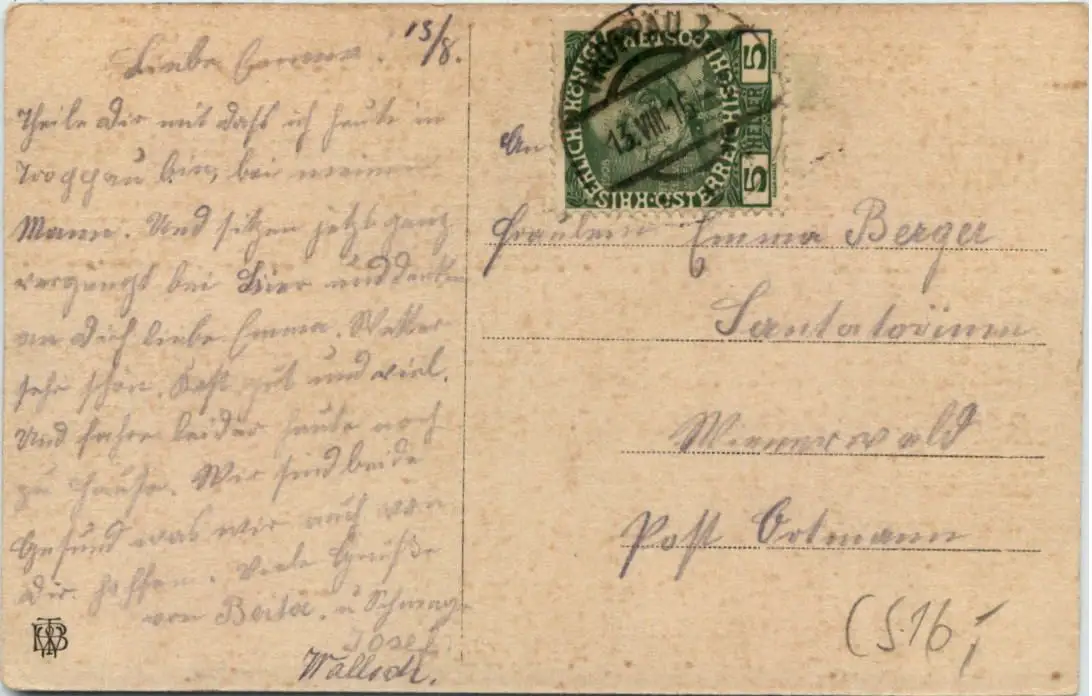 15/8.
Liebe Emma!
Theile dir mit daß ich heute in
Troppau bin, bei meinem
Mann. Und sitzen jetzt ganz
vergnügt bei Bier und denken
an Dich liebe Emma. Wetter
sehr schön. Kost gut und viel.
Und fahre leider heute noch
zu Hause. Wir sind beide
Gesund was wir auch von
Dir hoffen. Viele Grüße
von Berta. u Schwager
Josef
An
Fräulein Emma Berger
Santatorium
Wienerwald
Post Ortmann
TROPPAU 2
13.VIII.15
KAISERLICHE KÖNIGLICHE ÖSTERREICHISCHE POST
5 HELLER 5
(S16,